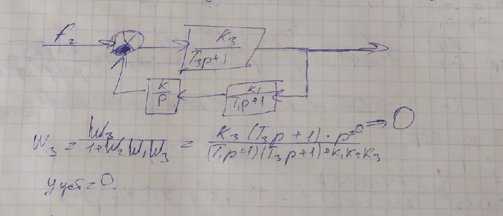 f₂
K₃
T₃p+1
K
p
K₁
T₁p+1
W₃ = W₃ / 1+W₂W₁W₃ = K₃(T₃p+1)·p⁼⁰ / (T₁p+1)(T₃p+1)+K₁K₂K₃ ⇒ 0
yуст=0.